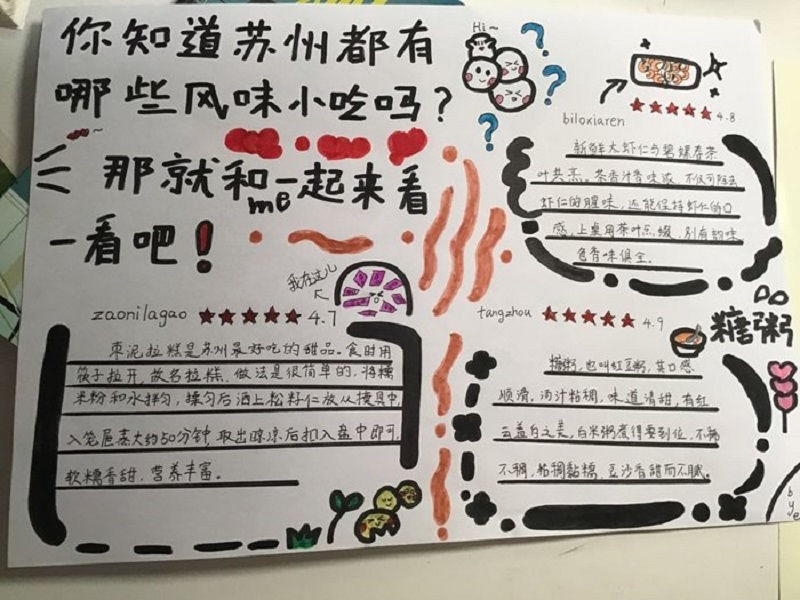 你知道苏州都有
哪些风味小吃吗?
那就和me一起来看
一看吧!
Hi~
biloxiaren
4.8
新鲜大虾仁与碧螺春茶
叶共烹。茶香汁香味浓,不仅可除去
虾仁的腥味,还能保持虾仁的口
感,上桌用茶叶点缀,别有韵味
色香味俱全。
我在这儿
zaonilagao
4.7
枣泥拉糕是苏州最好吃的甜品。食时用
筷子拉开,故名拉糕,做法是很简单的,将糯
米粉和水拌匀,揉匀后洒上松籽仁放入模具中,
入笼屉蒸大约50分钟,取出晾凉后扣入盘中即可,
软糯香甜,营养丰富。
tangzhou
4.9
糖粥
糖粥,也叫红豆粥,其口感
顺滑。汤汁粘稠,味道清甜,有红
云盖白之美,白米粥煮得要到位,不稀
不稠,粘稠黏糯,豆沙香甜而不腻。
bye